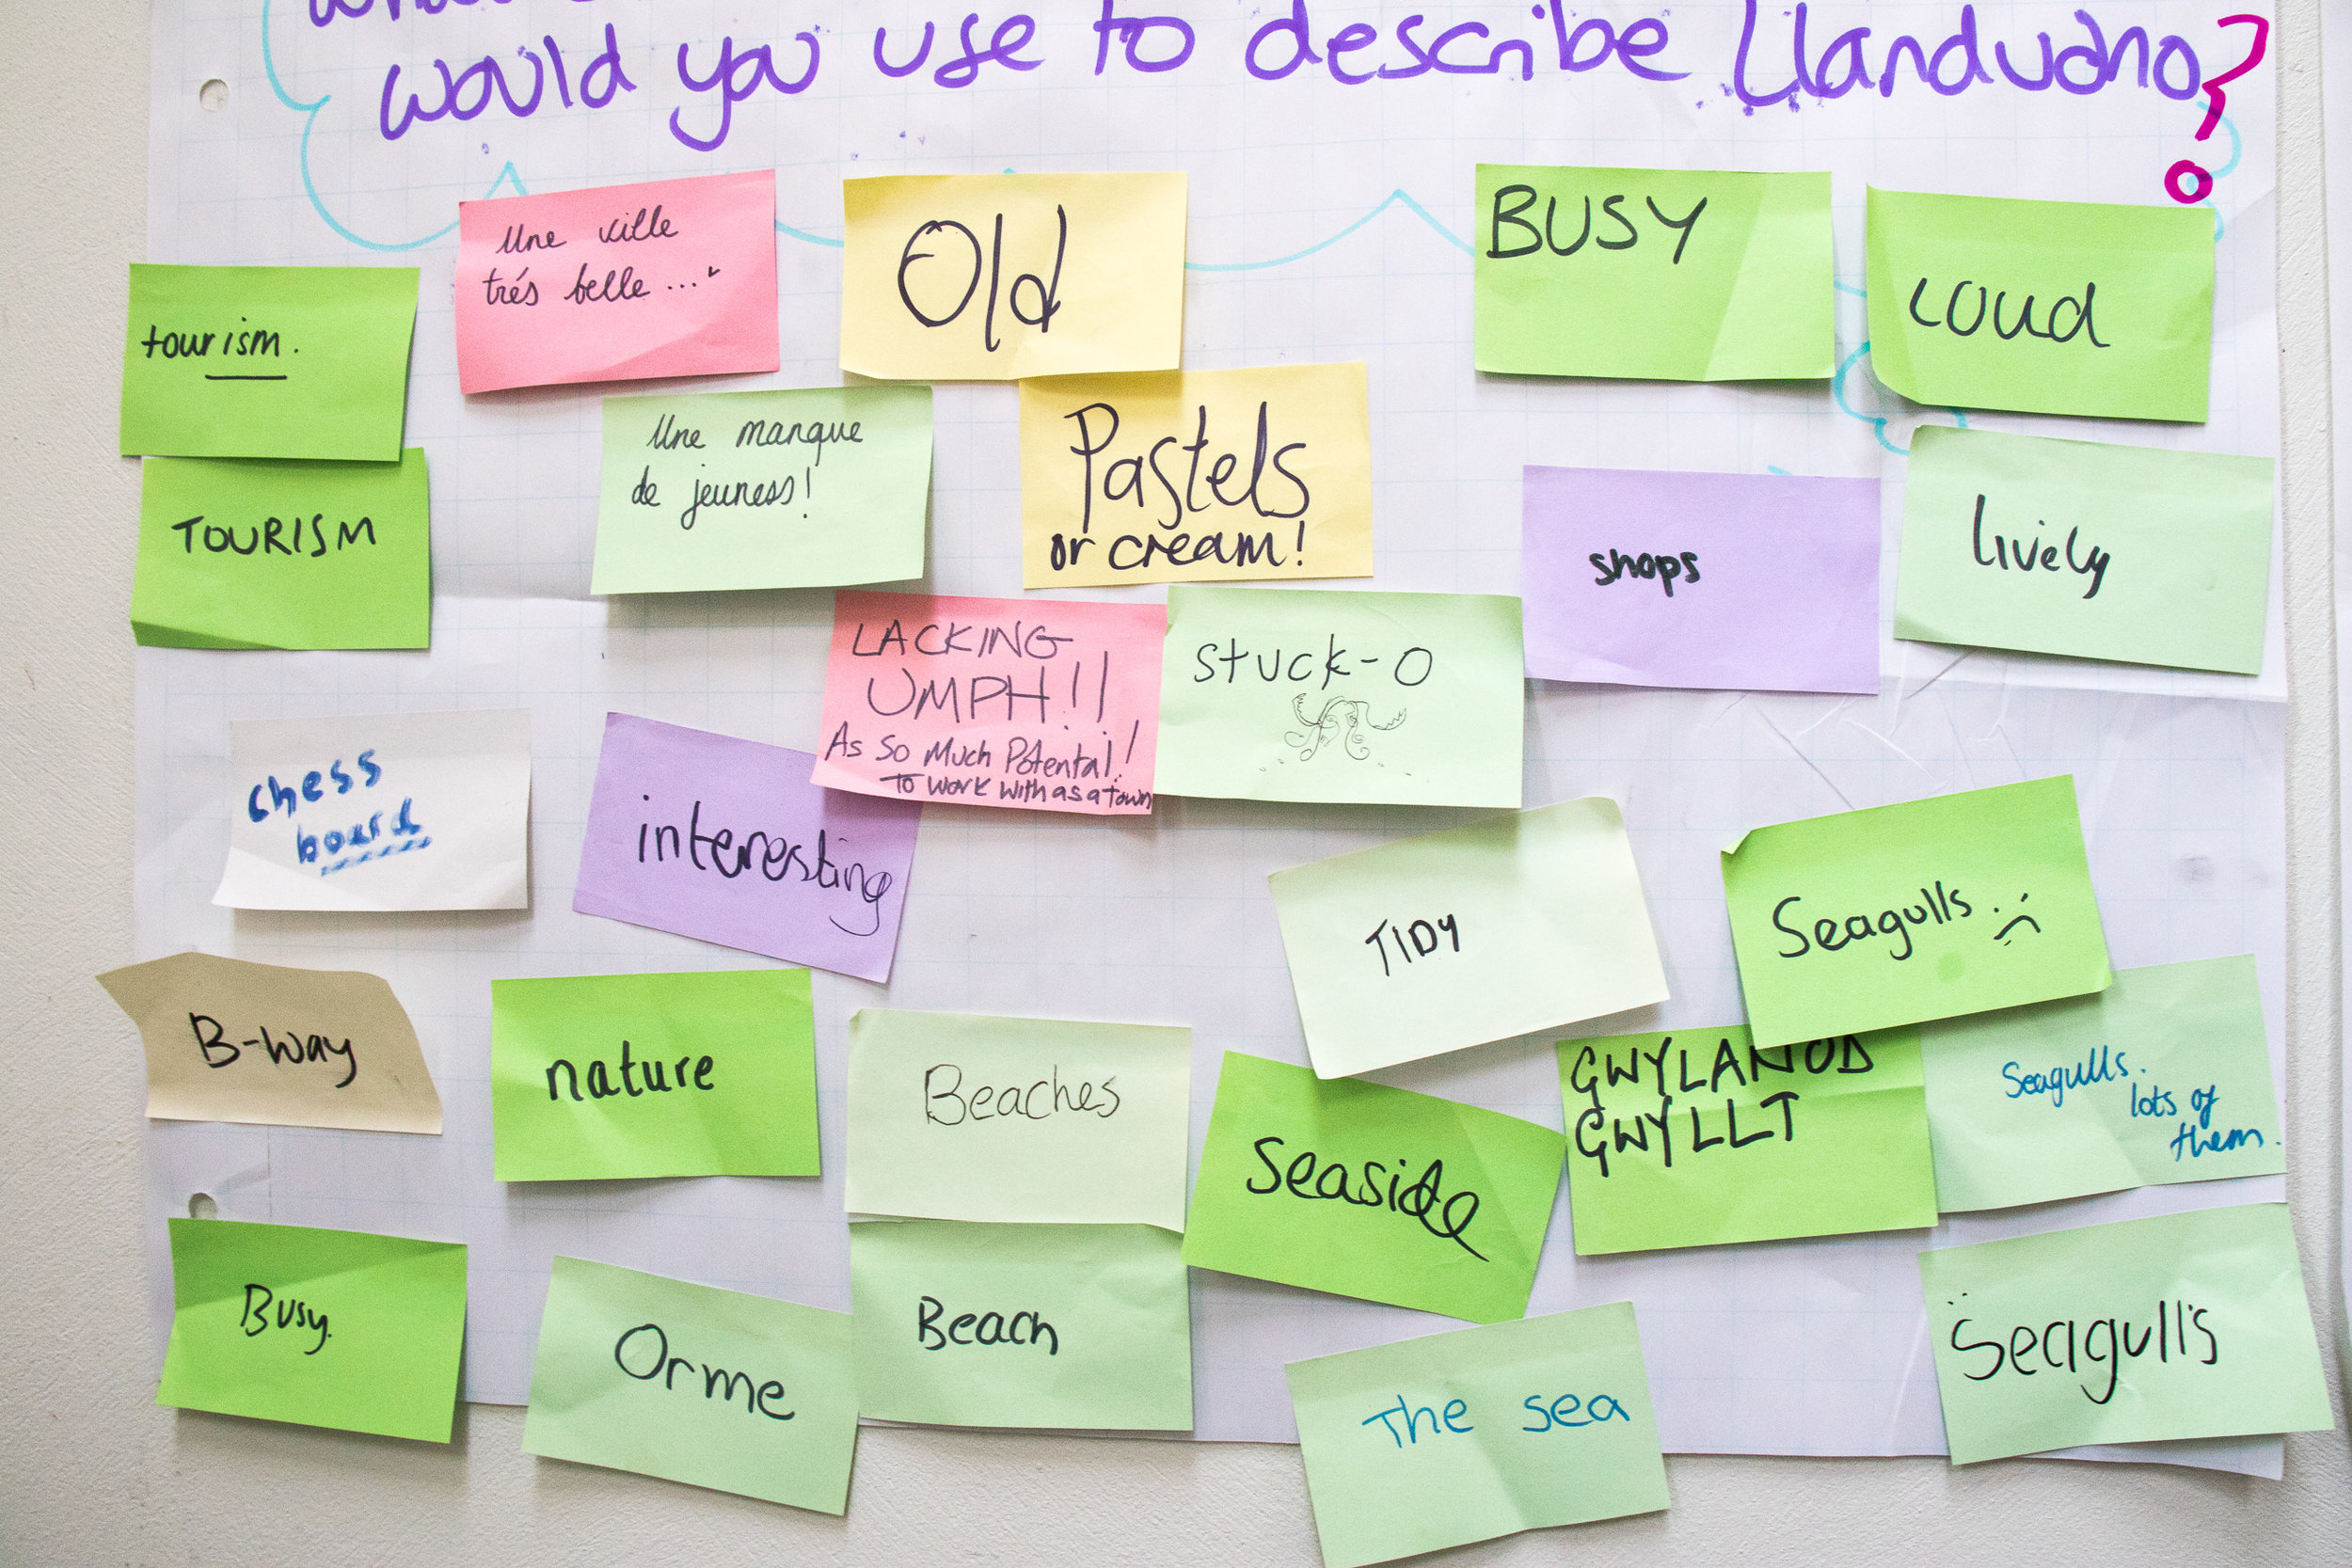 would you use to describe Llandudno?
Une ville
trés belle ...
Old
BUSY
Loud
tourism.
Une manque
de jeuness!
Pastels
or cream!
TOURISM
shops
lively
LACKING
UMPH!!
As So Much Potental!
To work with as a town
Stuck-O
chess
board
interesting
TIDY
Seagulls :(
B-way
nature
Beaches
Seaside
GWYLANOD
GWYLLT
Seagulls.
lots of
them.
Busy.
Orme
Beach
The sea
Seagulls